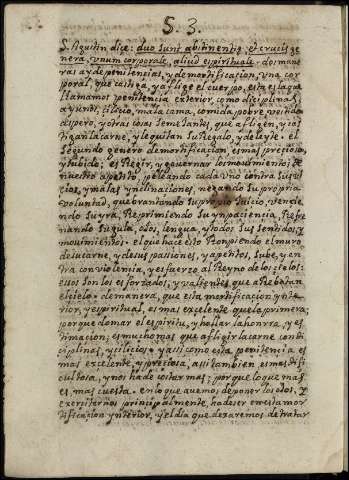 §. 3.
S. Agustin dice: duo sunt abstinentię, et crucis ge
nera, vnum corporale, aliud espirituale. dos mane
ras ay de penitencias, y de mortificacion, vna cor
poral, que castiga, y aflige el cuerpo, esta es la que
llamamos penitencia exterior, como diciplinas,
ayunos, silicio, mala cama, comida pobre, vestido
aspero, y otras cosas semejantes, que afligen, y cas
tigan la carne, y le quitan su Regalo, y deleyte. el
segundo genero de mortificacion, es mas precioso,
y subido; es Regir, y gouernar los mouimientos de
nuestro apetito, peleando cada vno contra sus vi
cios, y malas ynclinaciones, negando su propria
voluntad, quebrantando su propio Juicio, vencien
do su yra, Reprimiendo su ynpaciencia, Refre
nando su gula, ojos, lengua, y todos sus sentidos, y
mouimientos. el que hace esto Ronpiendo el muro
de su carne, y de sus passiones, y apetitos, sube, y en
tra con violencia, y esfuerzo al Reyno de los cielos:
essos son los esforzados, y valientes que aRebatan
el cielo. de manera, que esta mortificacion ynte
rior, y espiritual, es mas excelente que la primera;
porque domar el espiritu, y hollar la honrra, y es
timacion; es mucho mas que afligir la carne con di
ciplinas, y silicios. y assi como esta penitencia es
mas excelente, y preciosa, assi tambien es mas difi
cultosa, y nos ha de costar mas; por que lo que mas
es, mas cuesta. en lo que auemos de poner los ojos, y
exercitarnos principalmente, ha de ser en esta mor
tificacion ynterior, y el dia que dexaremos de tratar